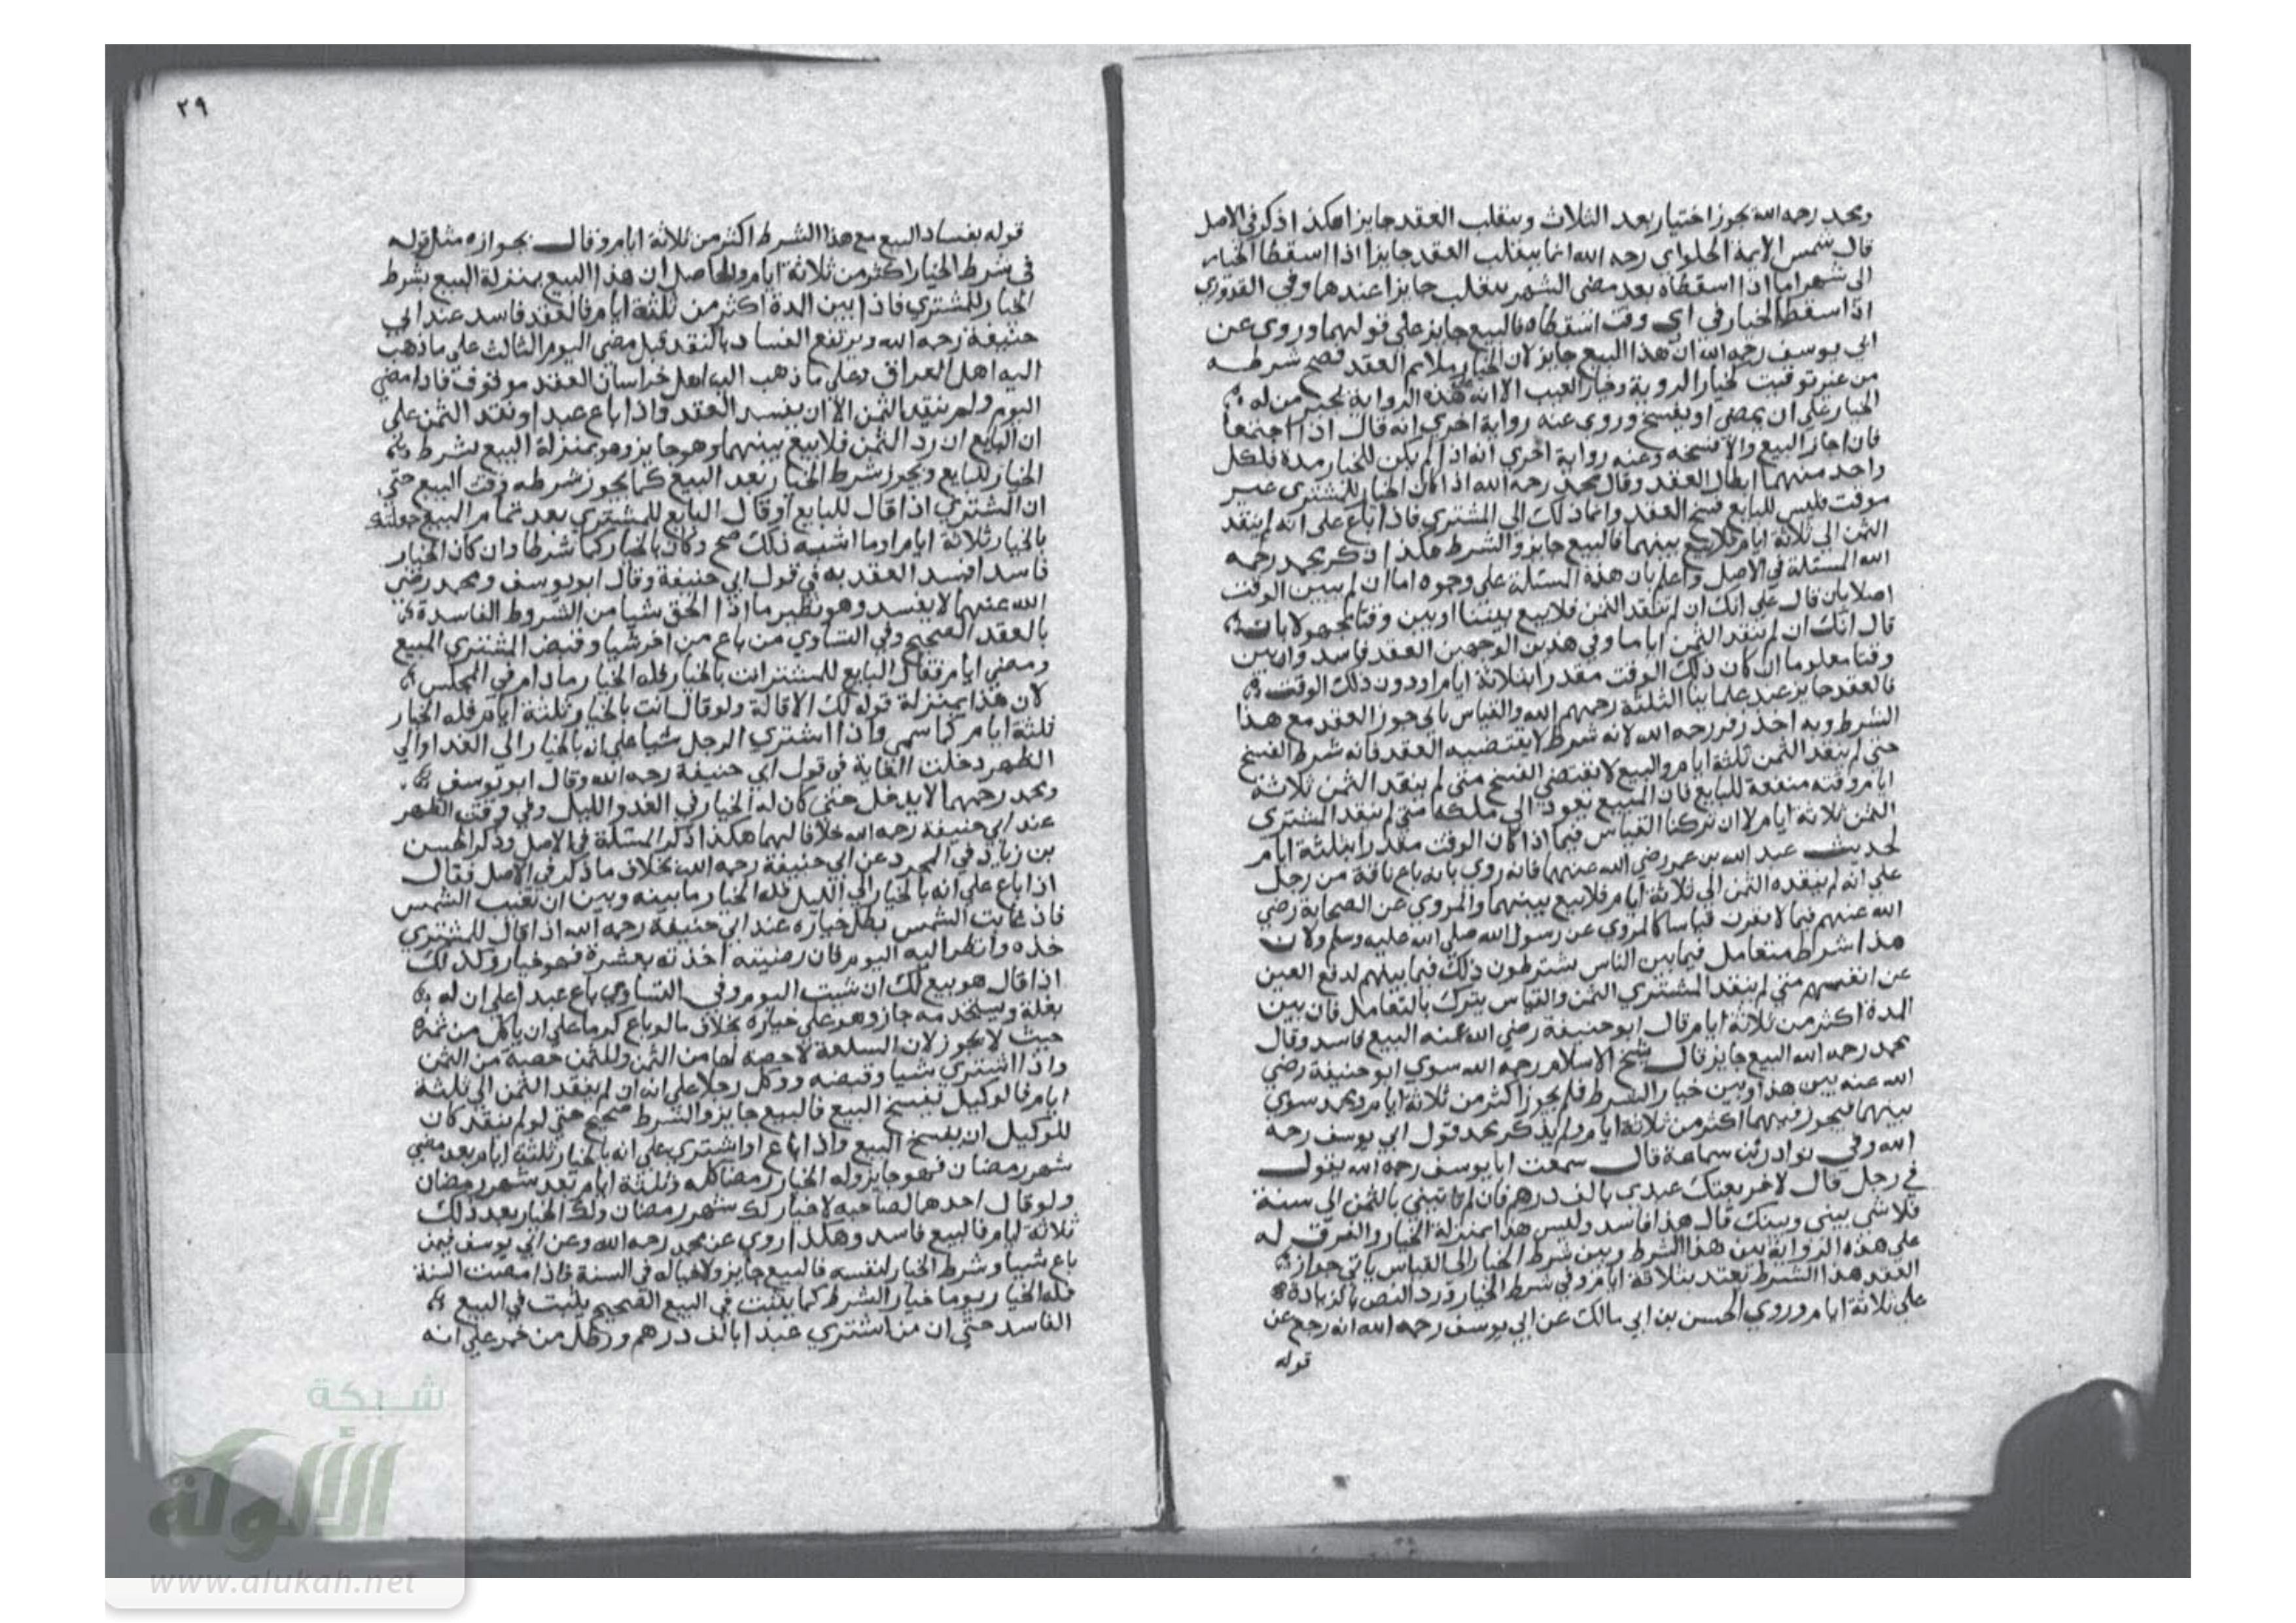 ومحمد رحمه الله يجوز اختيار بعد الثلاث وينقلب العقد جايزا هكذا ذكر في الاصل
قال شمس الايمة الحلواي رحمه الله انما ينقلب العقد جايزا اذا اسقطا الخيار
الى شهر اما اذا اسقطاه بعد مضى الشهر ينقلب جايزا عندهما وفي القدوري
اذا اسقطا الخيار في اي وقت اسقطاه فالبيع جايز على قولهما وروى عن
ابي يوسف رحمه الله ان هذا البيع جايز لان الخيار ملايم العقد فصح شرطه
من غير توقيت كخيار الروية وخيار العيب الا انه هذه الرواية يجبر من له
الخيار على ان يمضي او يفسخ وروى عنه رواية اخرى انه قال اذا اجتمعا
فان اجاز البيع والا فسخه وعنه رواية اخرى انه اذا لم يكن للخيار مدة فلكل
واحد منهما ابطال العقد وقال محمد رحمه الله اذا كان الخيار للمشترى غير
موقت فليس للبايع فسخ العقد وانما ذلك الى المشتري فاذا باع على انه لم ينقد
الثمن الى ثلاثة ايام فلا بيع بينهما فالبيع جايز والشرط هكذا ذكر محمد رحمه
الله المسئلة في الاصل واعلم بان هذه المسئلة على وجوه اما ان لم يبين الوقت
اصلا بان قال على انك ان لم تنقد الثمن فلا بيع بيننا او بين وقتا مجهولا بان
قال انك ان لم تنقد الثمن اياما وفي هذين الوجهين العقد فاسد وان بين
وقتا معلوما ان كان ذلك الوقت مقدرا بثلاثة ايام او دون ذلك الوقت
فالعقد جايز عند علمائنا الثلثة رحمهم الله والقياس يابى جواز العقد مع هذا
الشرط وبه اخذ زفر رحمه الله لانه شرط لا يقتضيه العقد فانه شرط الفسخ
متى لم ينقد الثمن ثلثة ايام والبيع لا يقتضي الفسخ متى لم ينقد الثمن ثلاثة
ايام وفيه منفعة للبايع فان المبيع يعود الى ملكه متى لم ينقد المشترى
الثمن ثلاثة ايام الا ان تركنا القياس فيما اذا كان الوقت مقدرا بثلثة ايام
لحديث عبد الله بن عمر رضي الله عنهما فانه روي بانه باع ناقة من رجل
على انه لم ينقده الثمن الى ثلاثة ايام فلا بيع بينهما والمروي عن الصحابة رضي
الله عنهم فيما لا يعرف قياسا كالمروي عن رسول الله صلى الله عليه وسلم ولان
هذا شرط متعامل فيما بين الناس يشترطون ذلك فيما بينهم لدفع الغبن
عن انفسهم متى لم ينقد المشتري الثمن والقياس يترك بالتعامل فان بين
المدة اكثر من ثلاثة ايام قال ابو حنيفة رضي الله عنه البيع فاسد وقال
محمد رحمه الله البيع جايز قال شيخ الاسلام رحمه الله سوى ابو حنيفة رضي
الله عنه بين هذا وبين خيار الشرط فلم يجوز اكثر من ثلاثة ايام ومحمد سوى
بينهما فيجوز فيهما اكثر من ثلاثة ايام ولم يذكر محمد قول ابي يوسف رحمه
الله وفي نوادر ابن سماعة قال سمعت ابا يوسف رحمه الله يقول
في رجل قال لاخر بعتك عبدي بالف درهم فان لم تاتيني بالثمن الى سنة
فلا شي بيني وبينك قال هذا فاسد وليس هذا بمنزلة الخيار والفرق له
على هذه الرواية بين هذا الشرط وبين شرط الخيار ان القياس يابى جواز
العقد هذا الشرط بثلاثة ايام وفي شرط الخيار ورد النص بالزيادة
على ثلاثة ايام وروي الحسن بن ابي مالك عن ابي يوسف رحمه الله انه رجع عن
قوله
٢٩
قوله بفساد البيع مع هذا الشرط اكثر من ثلاثة ايام وقال بجوازه مثل قوله
في شرط الخيار اكثر من ثلاثة ايام والحاصل ان هذا البيع بمنزلة البيع بشرط
الخيار للمشتري فاذا بين المدة اكثر من ثلثة ايام فالعقد فاسد عند ابي
حنيفة رحمه الله ويرتفع الفساد بالنقد قبل مضى اليوم الثالث على ما ذهب
اليه اهل العراق وعلى ما ذهب اليه اهل خراسان العقد موقوف فاذا مضى
اليوم ولم ينقد الثمن الان يفسد العقد واذا باع عبدا ونقد الثمن على
ان البايع ان رد الثمن فلا بيع بينهما وهو جايز وهو بمنزلة البيع بشرط
الخيار للبايع ويجوز شرط الخيار بعد البيع كما يجوز شرطه وقت البيع حتى
ان المشتري اذا قال للبايع او قال البايع للمشتري بعد تمام البيع جعلتك
بالخيار ثلاثة ايام او ما اشبه ذلك صح وكان بالخيار كما شرطا وان كان الخيار
فاسدا فسد العقد به في قول ابي حنيفة وقال ابو يوسف ومحمد رضي
الله عنهما لا يفسد وهو نظير ما اذا الحق شيا من الشروط الفاسدة
بالعقد الصحيح وفي الفتاوي من باع من اخر شيا وقبض المشتري المبيع
ومضى ايام فقال البايع للمشتر انت بالخيار فله الخيار ما دام في المجلس
لان هذا بمنزلة قوله لك الاقالة ولو قال انت بالخيار ثلثة ايام فله الخيار
ثلثة ايام كما سمى واذا اشترى الرجل شيا على انه بالخيار الى الغد او الى
الظهر دخلت الغاية في قول ابي حنيفة رحمه الله وقال ابو يوسف
ومحمد رحمهما لا يدخل حتى كان له الخيار في الغد والليل وفي وقت الظهر
عند ابي حنيفة رحمه الله خلافا لهما هكذا ذكر المسئلة في الاصل وذكر الحسن
بن زياد في المجرد عن ابي حنيفة رحمه الله بخلاف ما ذكر في الاصل فقال
اذا باع على انه بالخيار الى الليل فله الخيار ما بينه وبين ان تغيب الشمس
فاذا غابت الشمس بطل خياره عند ابي حنيفة رحمه الله اذا قال للمشتري
خذه وانظر اليه اليوم فان رضيته اخذته بعشرة فهو خيار وكذلك
اذا قال هو بيع لك ان شيت اليوم وفي الفتاوي باع عبدا على ان له
بغلة ويستخدمه جاز وهو على خياره بخلاف ما لو باع كرما على ان ياكل من ثمره
حيث لا يجوز لان السلعة لا حصة لها من الثمن وللثمن حصة من الثمن
واذا اشترى شيا وقبضه ووكل رجلا على انه ان لم ينقد الثمن الى ثلثة
ايام فالوكيل يفسخ البيع فالبيع جايز والشرط صحيح حتى لو لم ينقد كان
للوكيل ان يفسخ البيع واذا باع او اشترى على انه بالخيار ثلثة ايام بعد مضي
شهر رمضان فهو جايز وله الخيار رمضا كله وثلثة ايام بعد شهر رمضان
ولو قال احدهما لصاحبه لا خيار لك شهر رمضان ولك الخيار بعد ذلك
ثلاثة ايام فالبيع فاسد وهكذا روي عن محمد رحمه الله وعن ابي يوسف فيمن
باع شيا وشرط الخيار لنفسه فالبيع جايز ولا خيار له في السنة فاذا مضت السنة
فله الخيار يوما خيار الشرط كما يثبت في البيع الصحيح يثبت في البيع
الفاسد حتى ان من اشترى عبدا بالف درهم ورطل من خمر على انه
شبكة
الألوكة
www.alukah.net